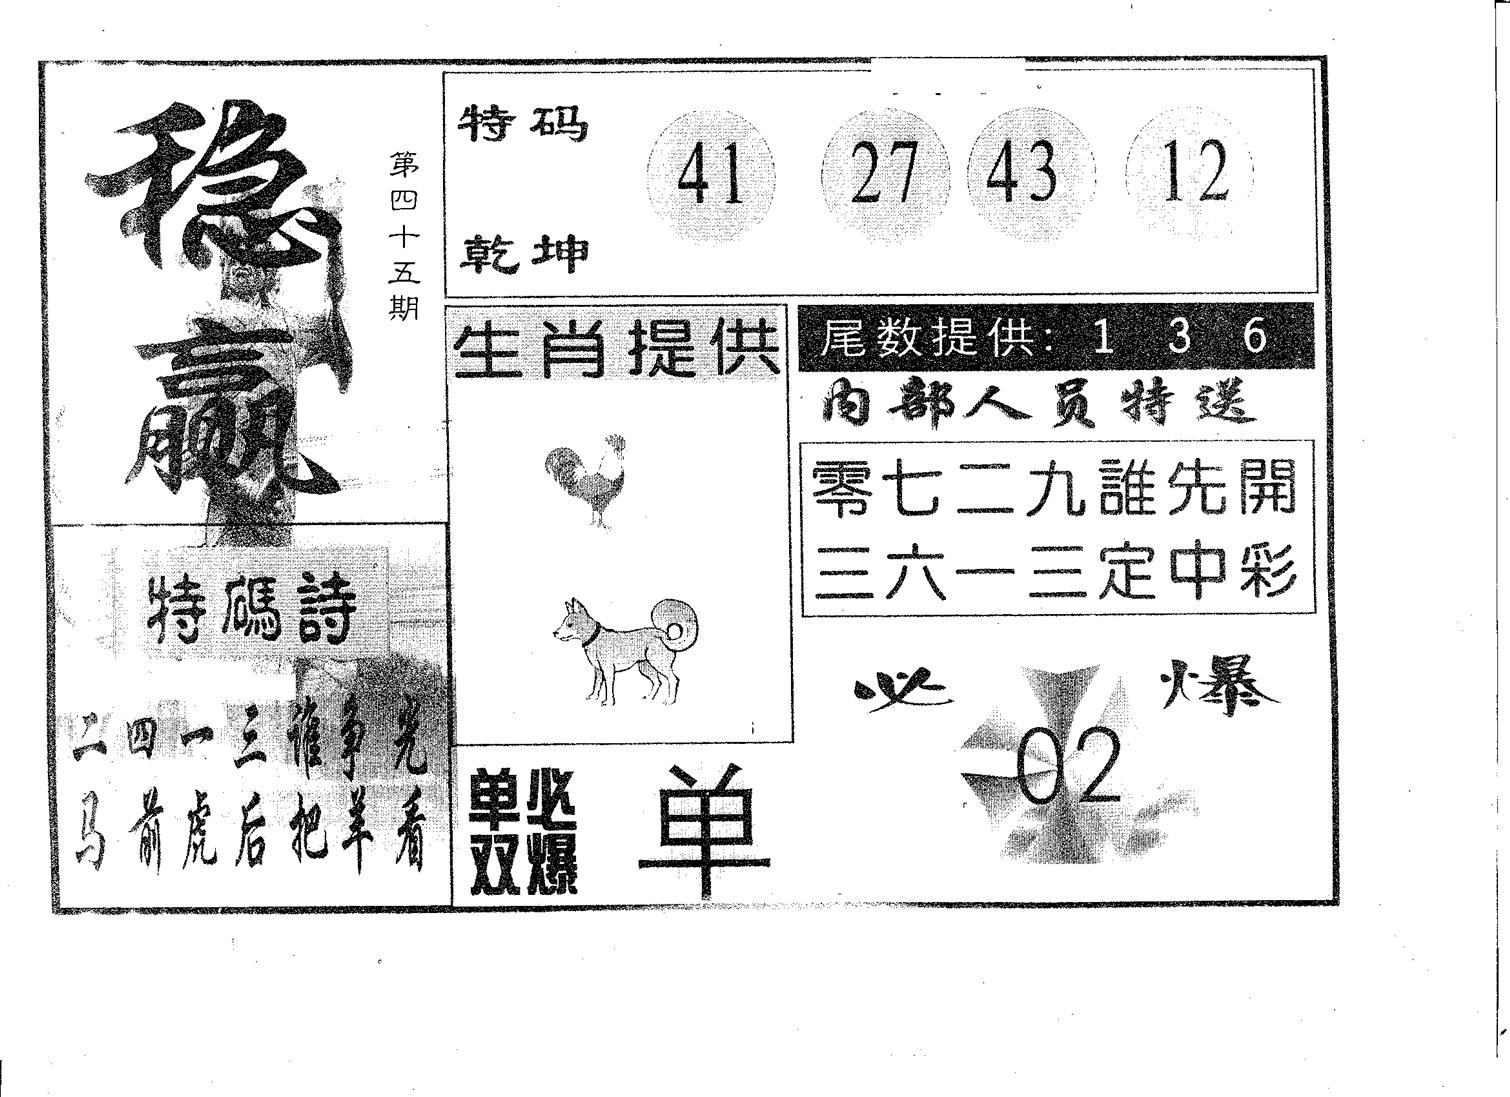 稳赢
第四十五期
特码
乾坤
41 27 43 12
生肖提供
尾数提供: 1 3 6
内部人员特送
零七二九誰先開
三六一三定中彩
特碼詩
二四一三谁争先
马前虎后把羊看
单双
必爆
单
必爆
02